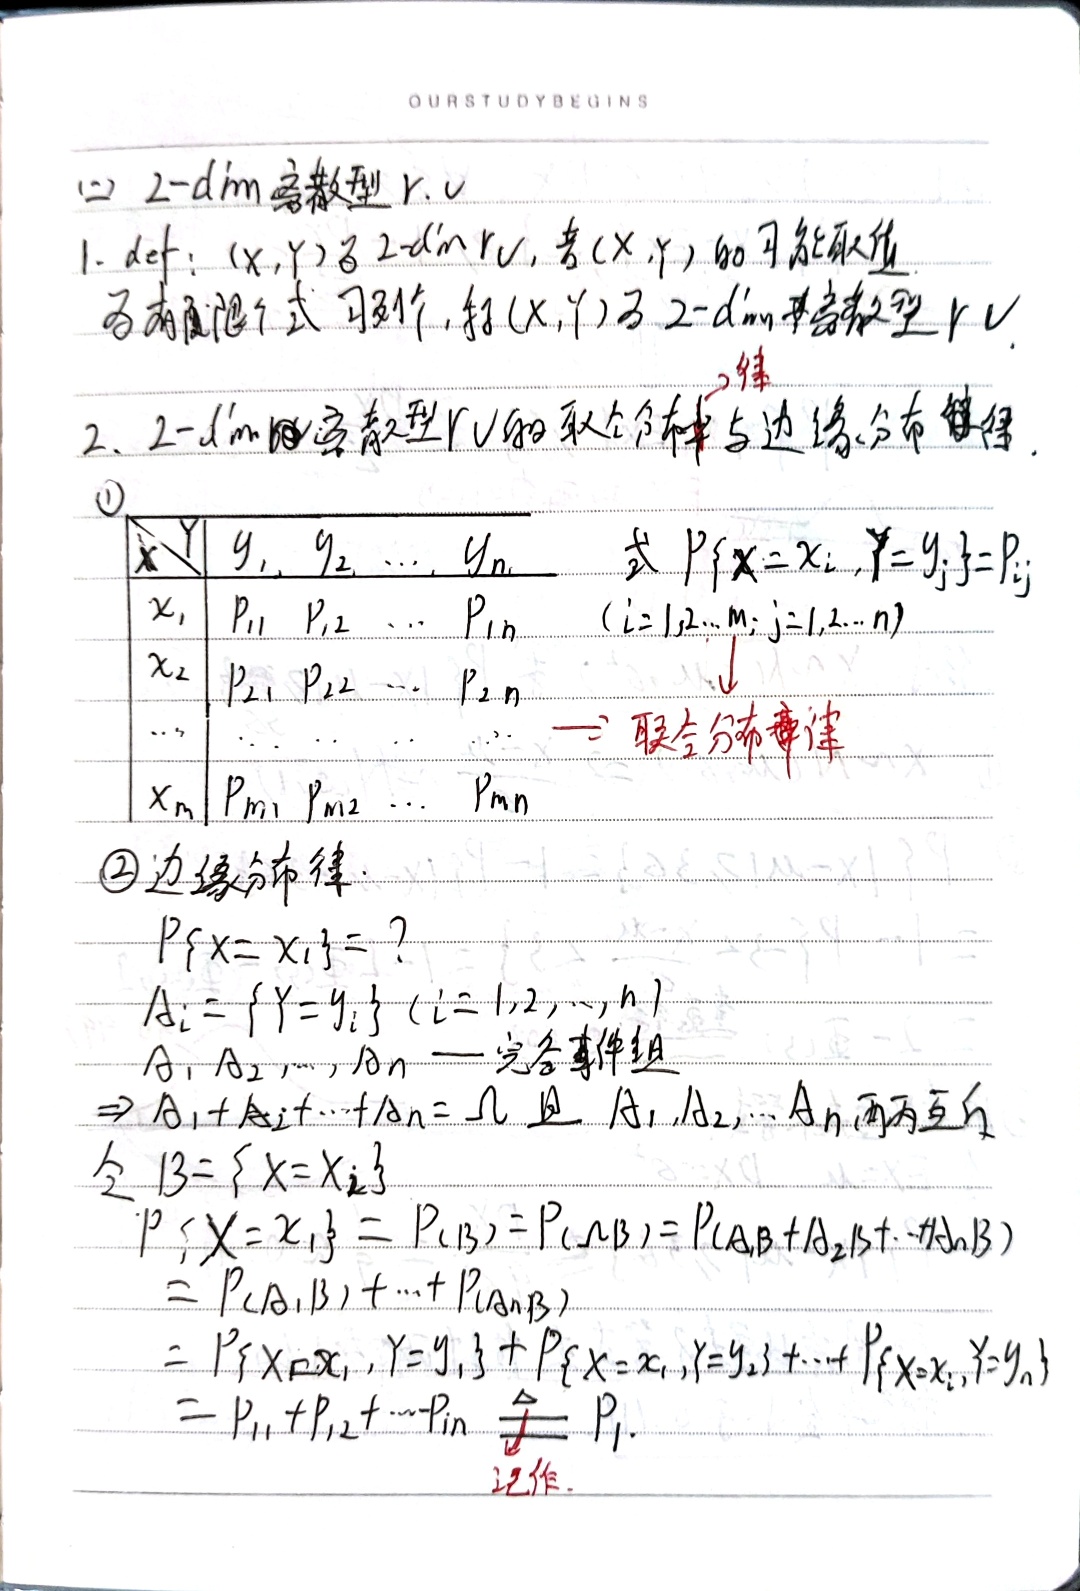 OURSTUDYBEGINS
(二) 2-dim 离散型 r.v
1. def: (X,Y)为 2-dim r.v, 若(X,Y)的可能取值
为有限个或可列个,称(X,Y)为 2-dim 离散型 r v.
律
2、2-dim 离散型 r v 的联合分布率与边缘分布律.
①
X Y y₁ y₂ … yₙ 或 P{X=xᵢ,Y=yⱼ}=Pᵢⱼ
x₁ P₁₁ P₁₂ … P₁ₙ (i=1,2…m; j=1,2…n)
x₂ P₂₁ P₂₂ … P₂ₙ
… … → 联合分布律
xₘ Pₘ₁ Pₘ₂ … Pₘₙ
②边缘分布律.
P{X=x₁}=?
Aᵢ={Y=yᵢ} (i=1,2,…,n)
A₁ A₂,…,Aₙ — 完备事件组
⇒ A₁+A₂+…+Aₙ=Ω 且 A₁,A₂,…Aₙ 两两互斥
令 B={X=Xᵢ}
P{X=x₁}=P(B)=P(ΩB)=P(A₁B+A₂B+…+AₙB)
=P(A₁B)+…+P(AₙB)
=P{X=x₁,Y=y₁}+P{X=x₁,Y=y₂}+…+P{X=xᵢ,Y=yₙ}
=P₁₁+P₁₂+…Pᵢₙ ≜ P₁.
记作.